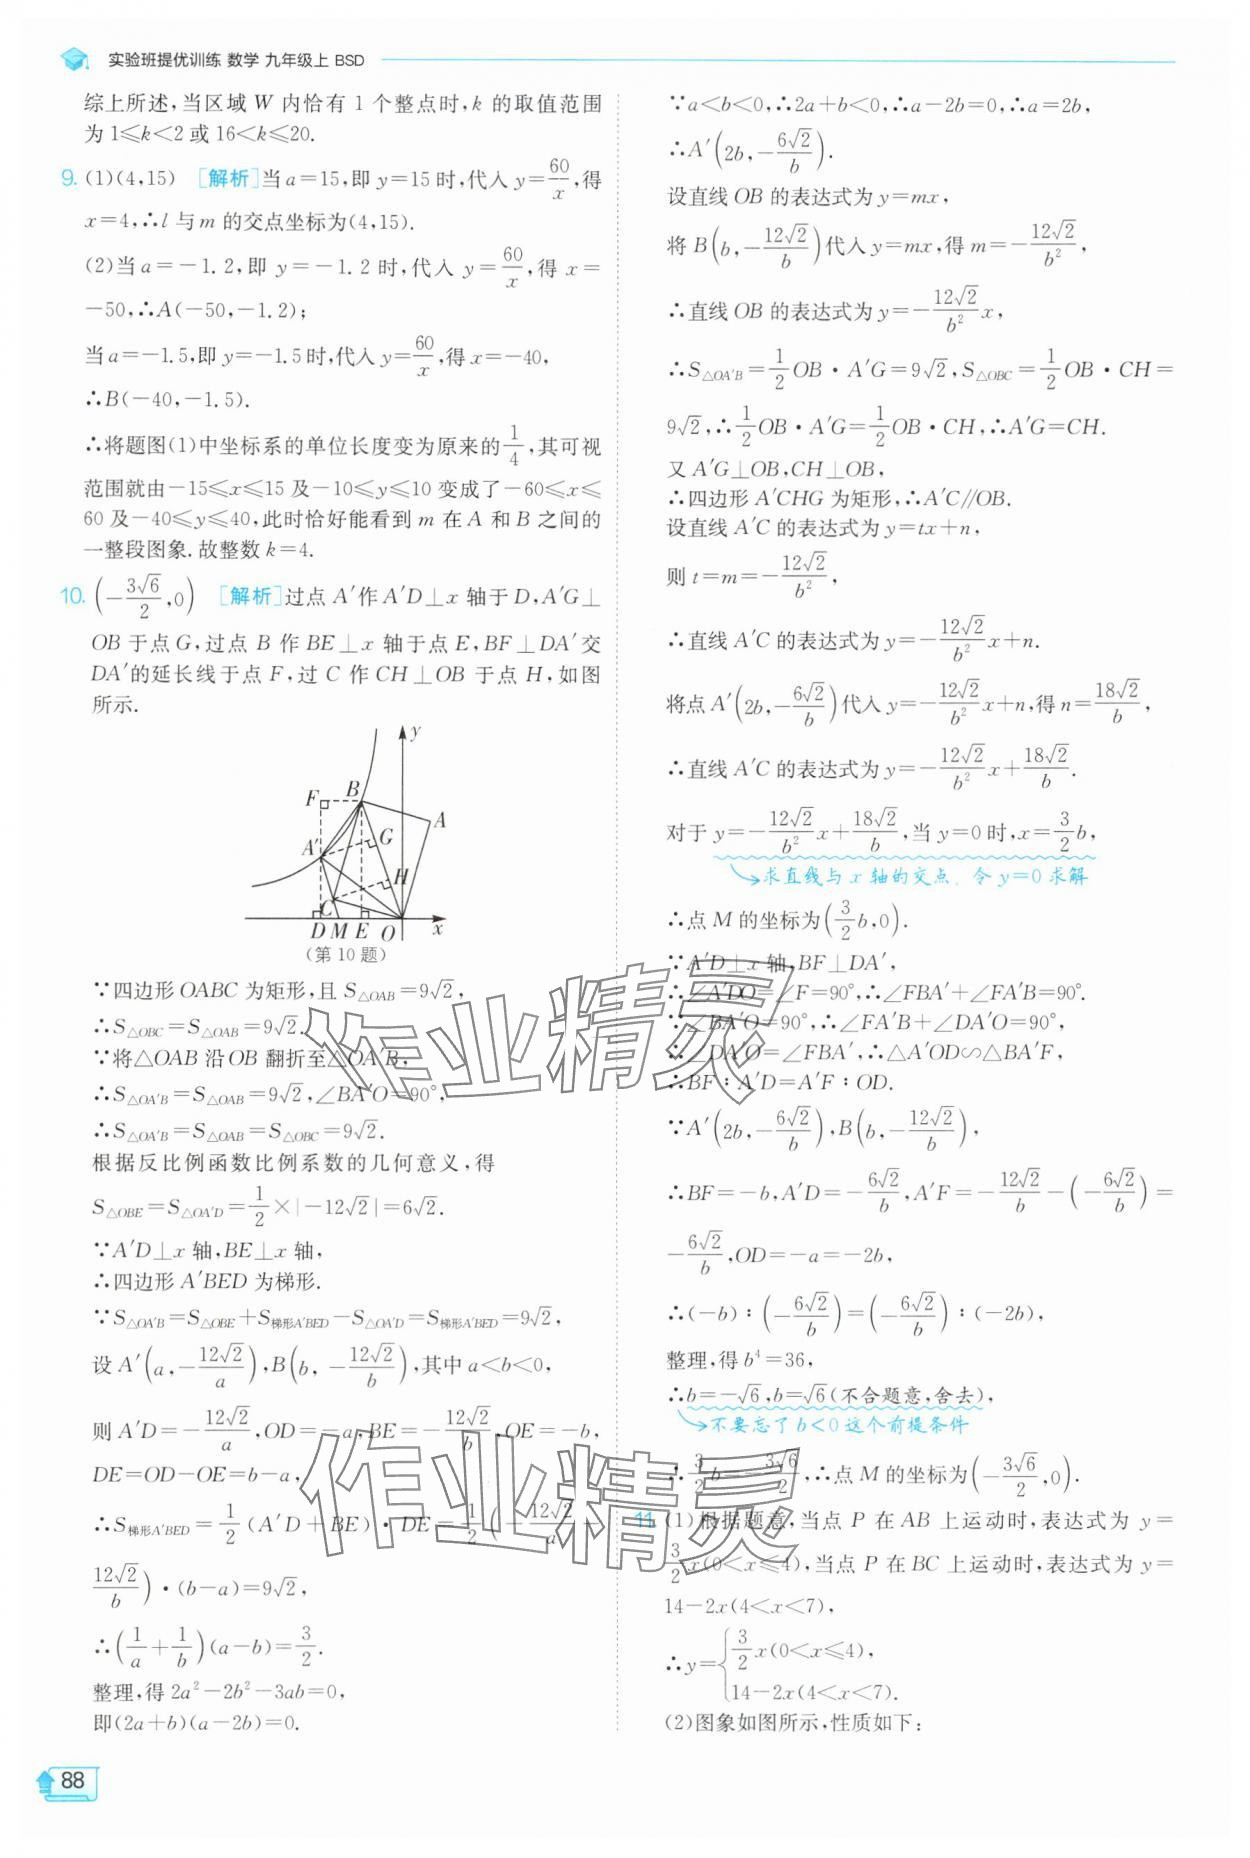 实验班提优训练 数学 九年级上 BSD
综上所述,当区域 W 内恰有 1 个整点时,k 的取值范围
为 1≤k<2 或 16<k≤20.
9. (1)(4,15) [解析]当 a=15,即 y=15 时,代入 y=60/x,得
x=4,∴l 与 m 的交点坐标为(4,15).
(2)当 a=-1.2,即 y=-1.2 时,代入 y=60/x,得 x=
-50,∴A(-50,-1.2);
当 a=-1.5,即 y=-1.5 时,代入 y=60/x,得 x=-40,
∴B(-40,-1.5).
∴将题图(1)中坐标系的单位长度变为原来的1/4,其可视
范围就由-15≤x≤15 及-10≤y≤10 变成了-60≤x≤
60 及-40≤y≤40,此时恰好能看到 m 在 A 和 B 之间的
一整段图象.故整数 k=4.
10. (-3√6/2,0) [解析]过点 A′作 A′D⊥x 轴于 D,A′G⊥
OB 于点 G,过点 B 作 BE⊥x 轴于点 E,BF⊥DA′交
DA′的延长线于点 F,过 C 作 CH⊥OB 于点 H,如图
所示.
y
F B
A
G
A′
H
C
D M E O x
(第 10 题)
∵四边形 OABC 为矩形,且 S△OAB=9√2,
∴S△OBC=S△OAB=9√2.
∵将△OAB 沿 OB 翻折至△OA′B,
∴S△OA′B=S△OAB=9√2,∠BA′O=90°,
∴S△OA′B=S△OAB=S△OBC=9√2.
根据反比例函数比例系数的几何意义,得
S△OBE=S△OA′D=1/2×|-12√2|=6√2.
∵A′D⊥x 轴,BE⊥x 轴,
∴四边形 A′BED 为梯形.
∵S△OA′B=S△OBE+S梯形A′BED-S△OA′D=S梯形A′BED=9√2,
设 A′(a,-12√2/a),B(b,-12√2/b),其中 a<b<0,
则 A′D=-12√2/a,OD=-a,BE=-12√2/b,OE=-b,
DE=OD-OE=b-a,
∴S梯形A′BED=1/2(A′D+BE)·DE=1/2(-12√2/a-
12√2/b)·(b-a)=9√2,
∴(1/a+1/b)(a-b)=3/2.
整理,得 2a²-2b²-3ab=0,
即(2a+b)(a-2b)=0.
∵a<b<0,∴2a+b<0,∴a-2b=0,∴a=2b,
∴A′(2b,-6√2/b).
设直线 OB 的表达式为 y=mx,
将 B(b,-12√2/b)代入 y=mx,得 m=-12√2/b²,
∴直线 OB 的表达式为 y=-12√2/b² x,
∴S△OA′B=1/2OB·A′G=9√2,S△OBC=1/2OB·CH=
9√2,∴1/2OB·A′G=1/2OB·CH,∴A′G=CH.
又 A′G⊥OB,CH⊥OB,
∴四边形 A′CHG 为矩形,∴A′C∥OB.
设直线 A′C 的表达式为 y=tx+n,
则 t=m=-12√2/b²,
∴直线 A′C 的表达式为 y=-12√2/b² x+n.
将点 A′(2b,-6√2/b)代入 y=-12√2/b² x+n,得 n=18√2/b,
∴直线 A′C 的表达式为 y=-12√2/b² x+18√2/b.
对于 y=-12√2/b² x+18√2/b,当 y=0 时,x=3/2 b,
求直线与 x 轴的交点,令 y=0 求解
∴点 M 的坐标为(3/2 b,0).
∵A′D⊥x 轴,BF⊥DA′,
∴∠A′DO=∠F=90°,∴∠FBA′+∠FA′B=90°.
∵∠BA′O=90°,∴∠FA′B+∠DA′O=90°,
∴∠DA′O=∠FBA′,∴△A′OD∽△BA′F,
∴BF∶A′D=A′F∶OD.
∵A′(2b,-6√2/b),B(b,-12√2/b),
∴BF=-b,A′D=-6√2/b,A′F=-12√2/b-(-6√2/b)=
-6√2/b,OD=-a=-2b,
∴(-b)∶(-6√2/b)=(-6√2/b)∶(-2b),
整理,得 b⁴=36,
∴b=-√6,b=√6(不合题意,舍去),
不要忘了 b<0 这个前提条件
∴3/2 b=-3√6/2,∴点 M 的坐标为(-3√6/2,0).
11. (1)根据题意,当点 P 在 AB 上运动时,表达式为 y=
3/2 x(0<x≤4),当点 P 在 BC 上运动时,表达式为 y=
14-2x(4<x<7),
∴y={3/2 x(0<x≤4),
14-2x(4<x<7).
(2)图象如图所示,性质如下:
88
作业精灵
作业精灵